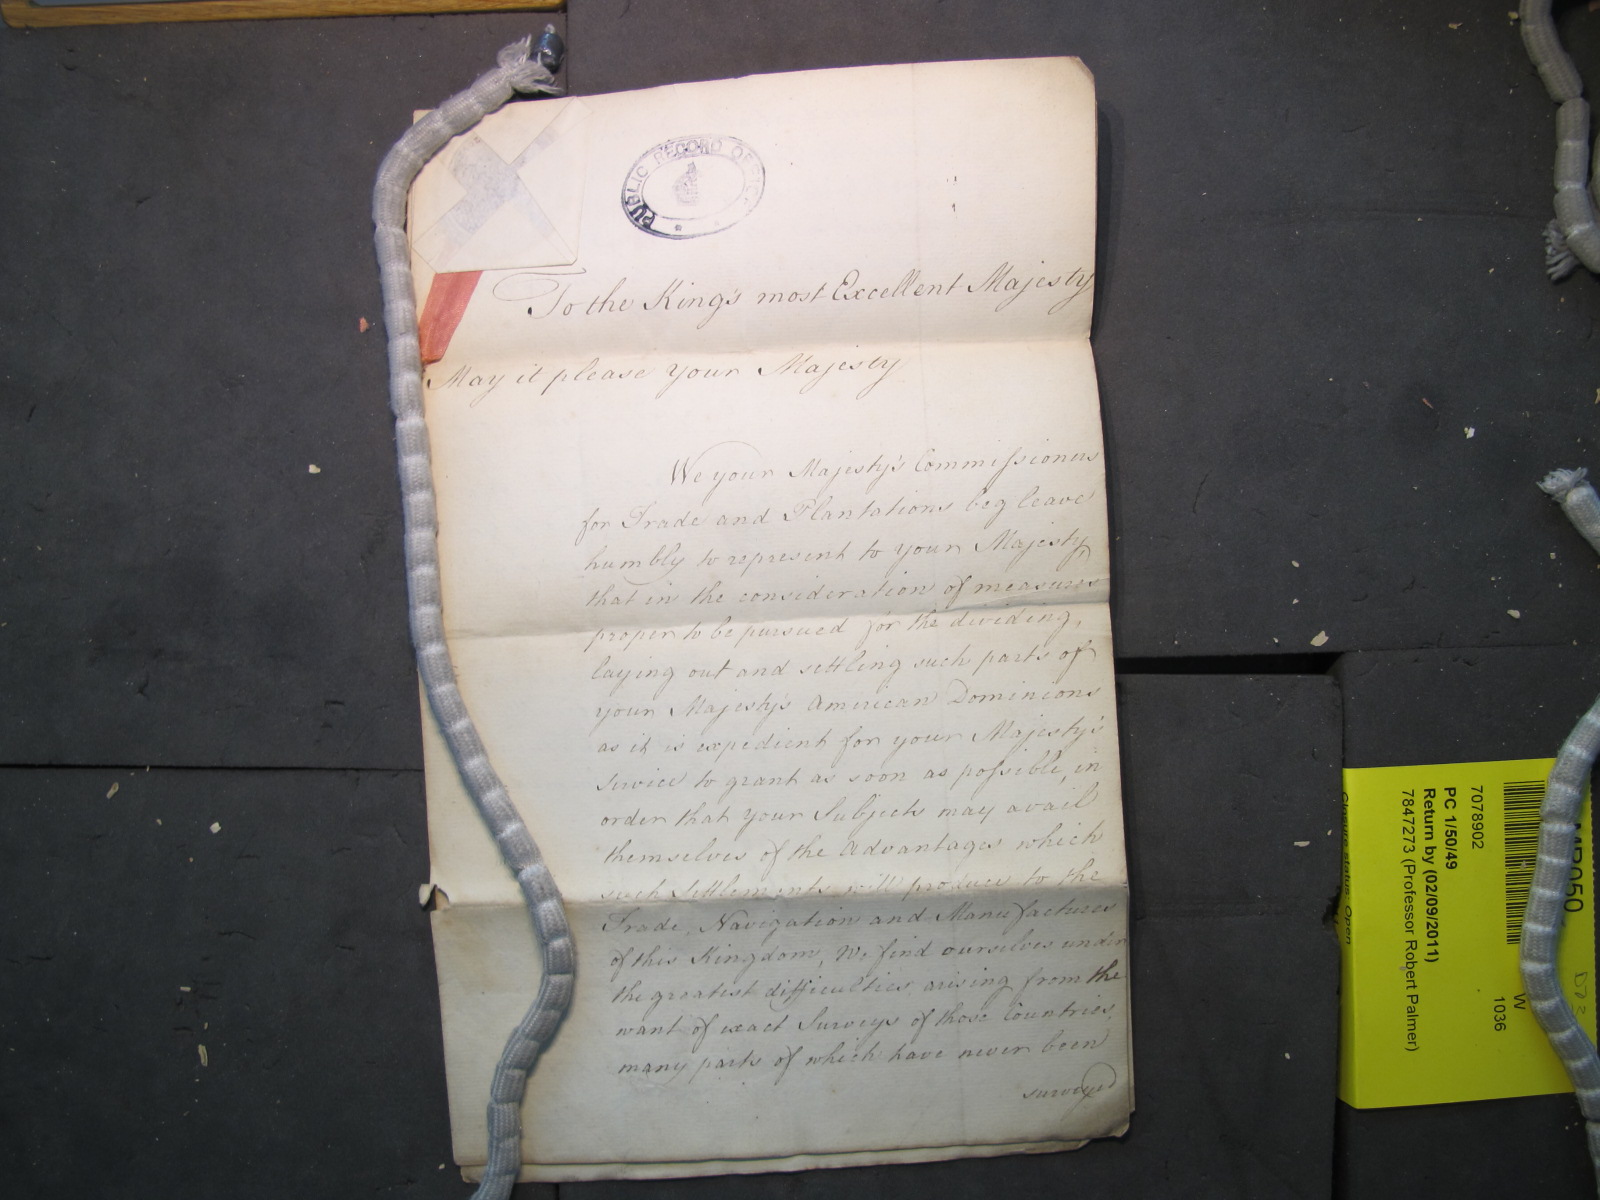 PUBLIC RECORD OFFICE
To the King's most Excellent Majesty
May it please your Majesty
We your Majesty's Commissioners
for Trade and Plantations beg leave
humbly to represent to your Majesty,
that in the consideration of measures
proper to be pursued for the dividing,
laying out and settling such parts of
your Majesty's American Dominions
as it is expedient for your Majesty's
service to grant as soon as possible, in
order that your Subjects may avail
themselves of the Advantages which
such Settlements will produce to the
Trade, Navigation and Manufactures
of this Kingdom, We find ourselves under
the greatest difficulties arising from the
want of exact Surveys of those Countries,
many parts of which have never been
surveyed
7078902
PC 1/50/49
Return by (02/09/2011)
7847273 (Professor Robert Palmer)
Closure status: Open
W
1036